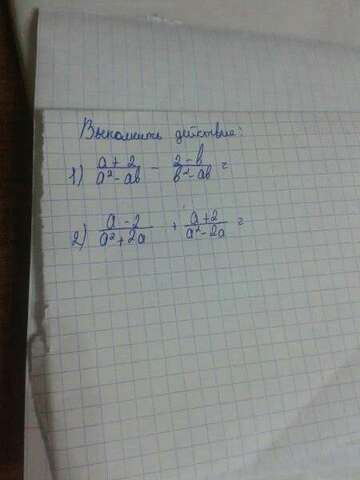 Выполнить действие:
1) (a + 2)/(a² - ab) - (2 - b)/(b² - ab) =
2) (a - 2)/(a² + 2a) + (a + 2)/(a² - 2a) =